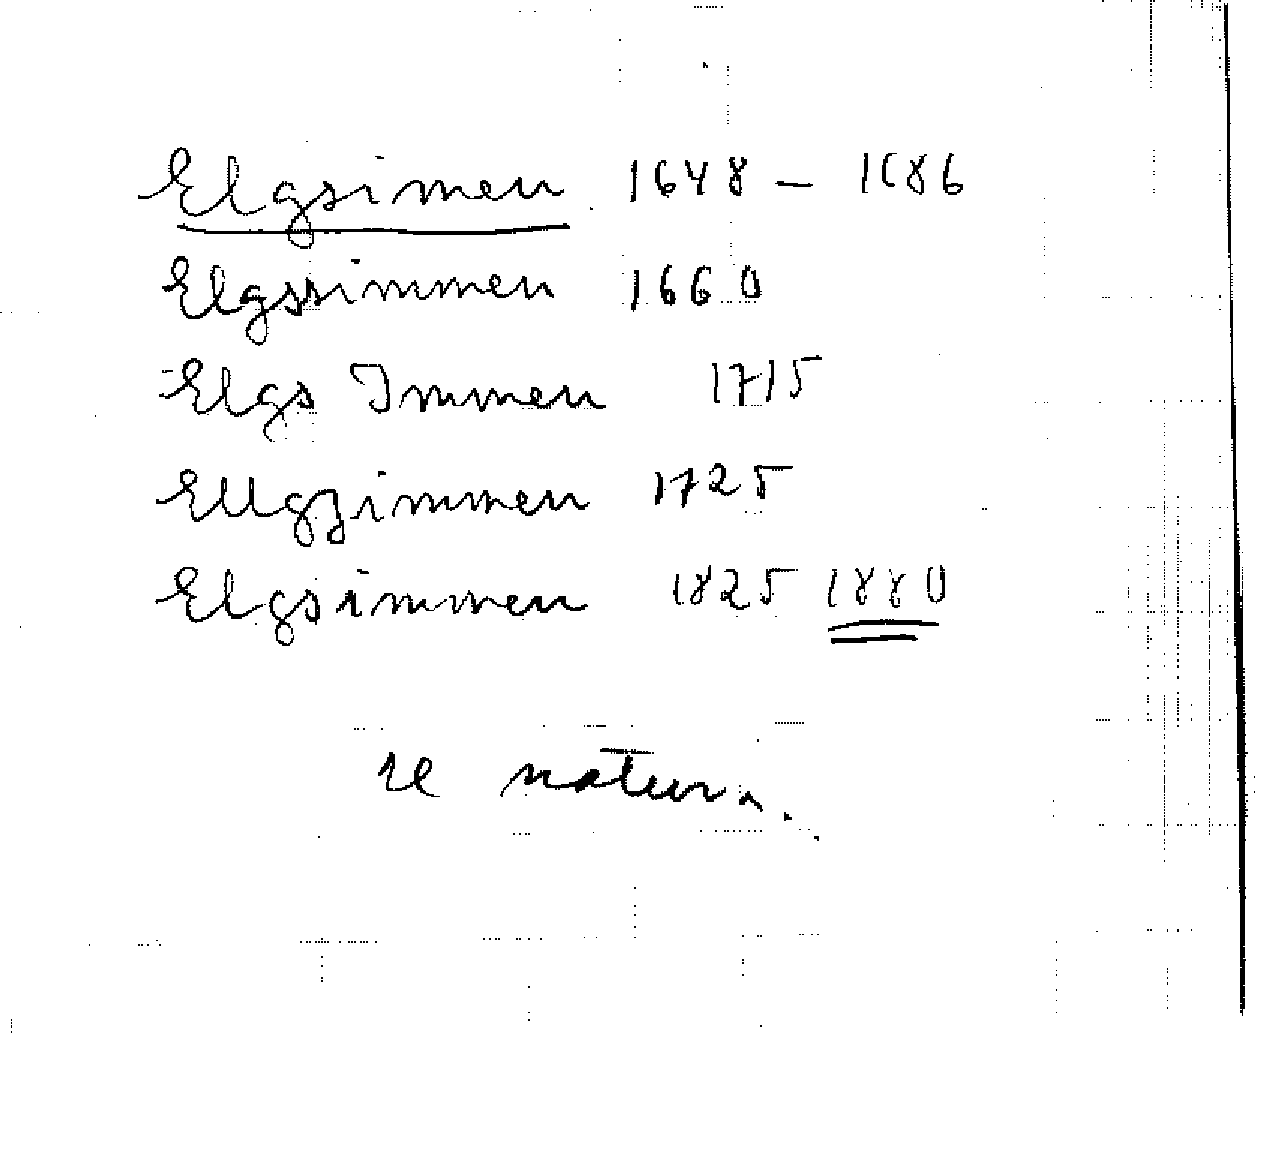 Elgsimen 1648 - 1686
Elgssimmen 1660
Elgs Immen 1715
Ellgzimmen 1725
Elgsimmen 1825 1880
natur